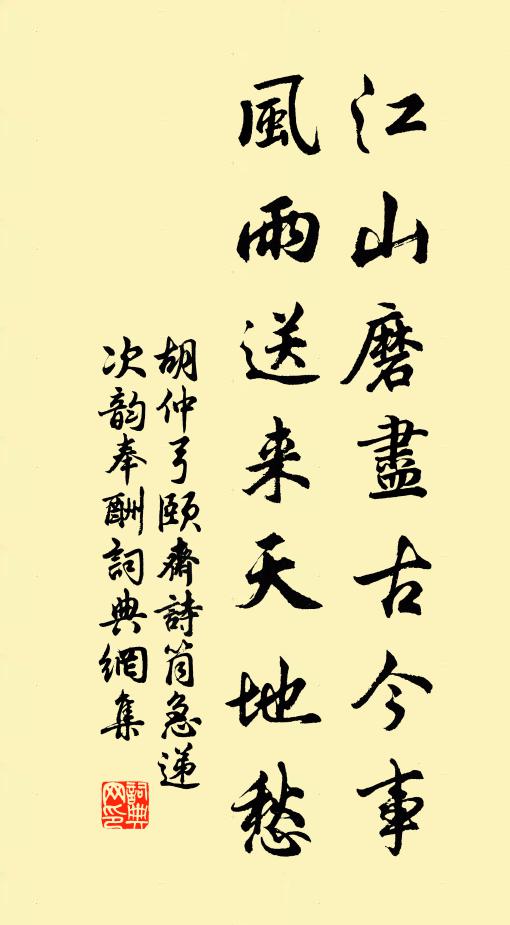 江山磨盡古今事
風雨送来天地愁
胡仲弓颐齋詩筒急递
次韵奉酬詞典網集
詞典网印